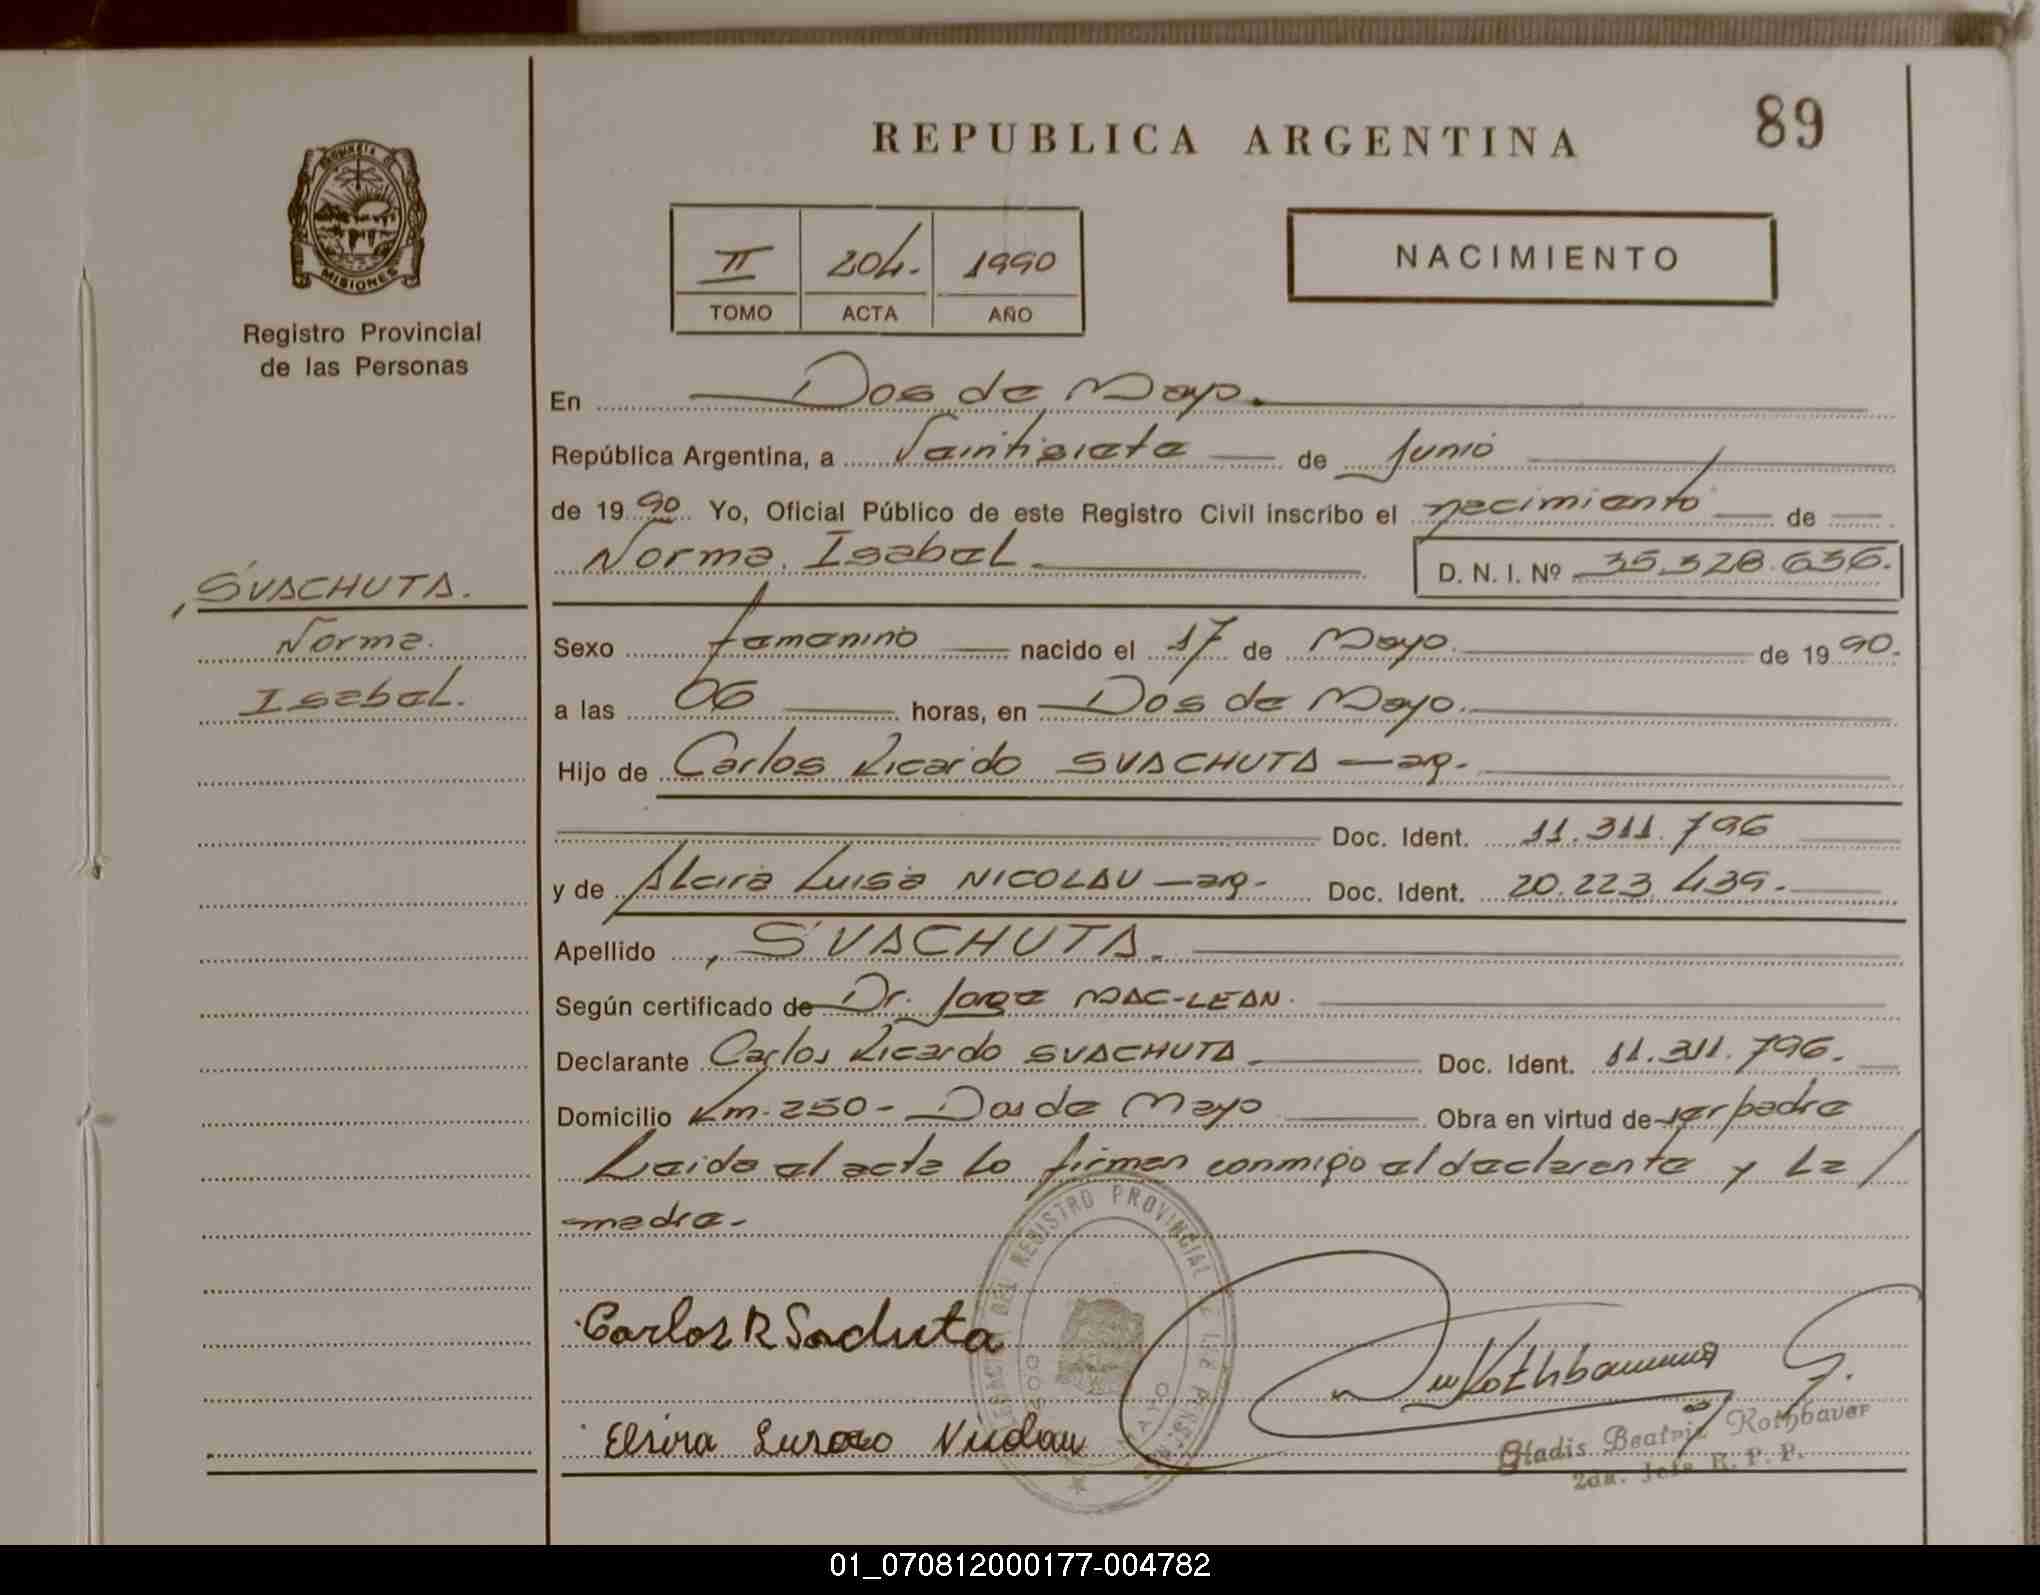 REPUBLICA ARGENTINA
89
MISIONES
Registro Provincial
de las Personas
II 204. 1990
TOMO ACTA AÑO
NACIMIENTO
En Dos de Mayo.
República Argentina, a Veintisiete de Junio
de 1990 Yo, Oficial Público de este Registro Civil inscribo el nacimiento de
Norma Isabel D. N. I. Nº 35.328.636.
SVACHUTA.
Norma.
Isabel.
Sexo femenino nacido el 17 de Mayo de 1990.
a las 06 horas, en Dos de Mayo.
Hijo de Carlos Ricardo SVACHUTA - arg.
Doc. Ident. 11.311.796
y de Alcira Luisa NICOLAU - arg. Doc. Ident. 20.223.439.
Apellido SVACHUTA.
Según certificado de Dr. Jorge MAC-LEAN.
Declarante Carlos Ricardo SVACHUTA Doc. Ident. 11.311.796.
Domicilio Km. 250 - Dos de Mayo Obra en virtud de ser padre
Leida el acta lo firman conmigo el declarante y la /
madre.
REGISTRO PROVINCIAL
Carlos R
Gladis Beatriz Rothbauer
2da. Jefe R. P. P.
01_070812000177-004782